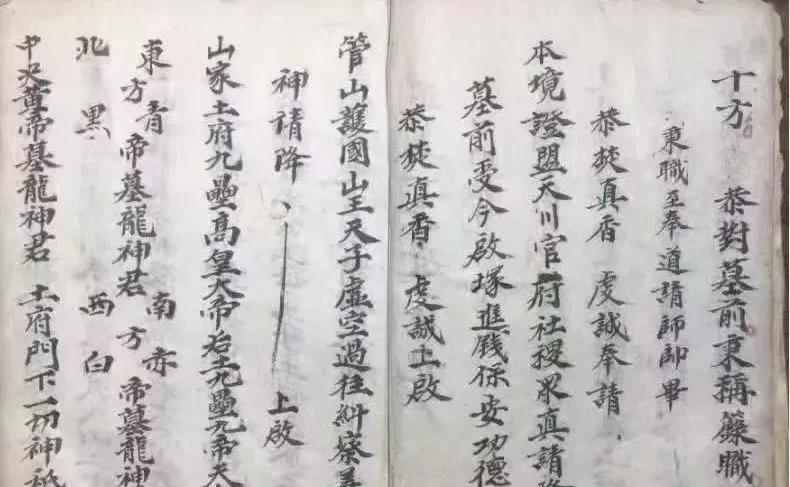 十方 恭對墓前東稱籙職
秉職至奉道請師即畢
恭焚真香 虔誠奉請
本境證盟天川官府社稷眾真請降
墓前受今啟塚進錢保安功德
恭焚真香 虔誠上啟
管山護國山王天子虛空過往糾察善
神請降、 上啟
山家土府九壘高皇大帝后土九壘九帝大
東方青帝墓龍神君 南方赤帝墓龍神
北 黑 西 白
中央黃帝墓龍神君 土府門下一切神祇